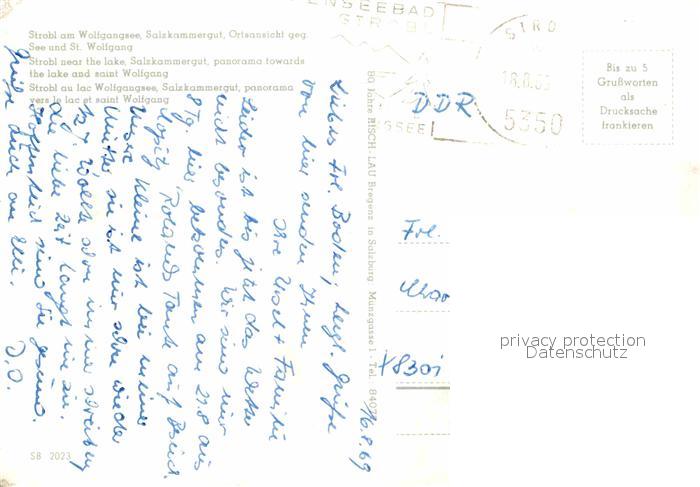 Strobl am Wolfgangsee, Salzkammergut, Ortsansicht geg.
See und St. Wolfgang
Strobl near the lake, Salzkammergut, panorama towards
the lake and saint Wolfgang
Strobl au lac Wolfgangsee, Salzkammergut, panorama
vers le lac et saint Wolfgang
ENSEEBAD
STROBL
GSEE
STRO
18.8.69
5350
DDR
Bis zu 5
Grußworten
als
Drucksache
frankieren
80 Jahre RISCH-LAU Bregenz in Salzburg Münzgasse 1 - Tel. 8407
16.8.69
Liebes Frl. Boden, herzl. Grüße
von hier senden Ihnen
Ihre Ursel + Familie
Leider ist bis jetzt das Wetter
nicht besonders. Wir sind nur
8 Tg. hier, bekommen am 21.8 aus
Rolands Tante auf Besuch.
Unsere Kleine ist bei meiner
Mutter, sie ist nur schon wieder
Wollte schon immer schreiben
die liebe Zeit langt nie zu.
Hoffentlich sind Sie gesund.
Grüße auch an Elli.
D.O.
Frl.
X8301
privacy protection
Datenschutz
SB 2023